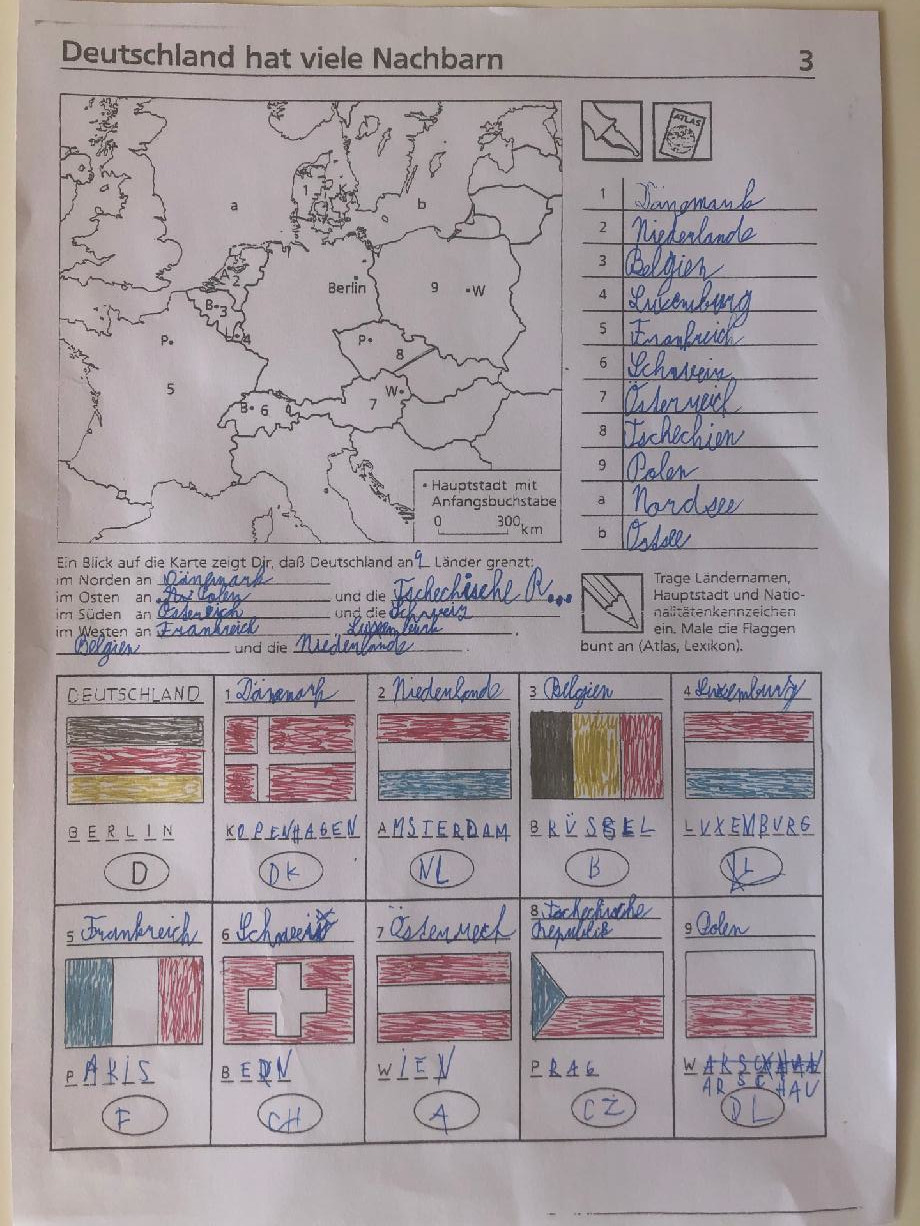 Deutschland hat viele Nachbarn 3
1
a
K
b
2
Berlin
9
W
B 3
L 4
P
P
8
5
W
7
B 6
Hauptstadt mit
Anfangsbuchstabe
0 300 km
ATLAS
1 Dänemark
2 Niederlande
3 Belgien
4 Luxemburg
5 Frankreich
6 Schweiz
7 Österreich
8 Tschechien
9 Polen
a Nordsee
b Ostsee
Ein Blick auf die Karte zeigt Dir, daß Deutschland an 9 Länder grenzt:
im Norden an Dänemark
im Osten an Polen und die Tschechische R...
im Süden an Östereich und die Schweiz
im Westen an Frankreich Luxemburg ,
Belgien und die Niederlande .
Trage Ländernamen,
Hauptstadt und Natio-
nalitätenkennzeichen
ein. Male die Flaggen
bunt an (Atlas, Lexikon).
DEUTSCHLAND
BERLIN
D
1 Dänemark
KOPENHAGEN
DK
2 Niederlande
AMSTERDAM
NL
3 Belgien
BRÜSSEL
B
4 Luxemburg
LUXEMBURG
L
5 Frankreich
PARIS
F
6 Schweiz
BERN
CH
7 Österreich
WIEN
A
8 Tschechische
Republik
PRAG
CZ
9 Polen
WARSCHAU
ARSCHAU
DL